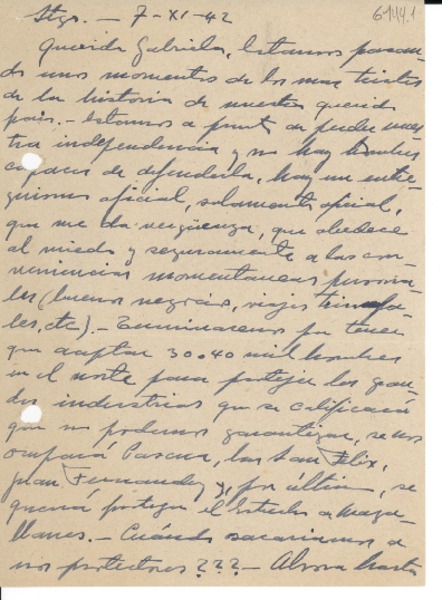 6144.1
Stgo. - 7-XI-42
Querida Gabriela, Estamos pasan-
do unos momentos de los mas tristes
de la historia de nuestro querido
país. - Estamos a punto de perder nues-
tra independencia y no hay hombres
capaces de defenderla, hay un entre-
guismo oficial, solamente oficial,
que me da vergüenza, que obedece
al miedo y seguramente a las con-
veniencias momentaneas persona-
les (buenos negocios, viajes triunfa-
les, etc). - Terminaremos por tener
que aceptar 30 o 40 mil hombres
en el norte para protejer las gran-
des industrias que se calificará
que no podemos garantizar, se nos
ocupará Pascua, las San Felix,
Juan Fernandez y, por último, se
querrá proteger el Estrecho de Maga-
llanes. - Cuándo sacaríamos a
los protectores ??? - Ahora hasta